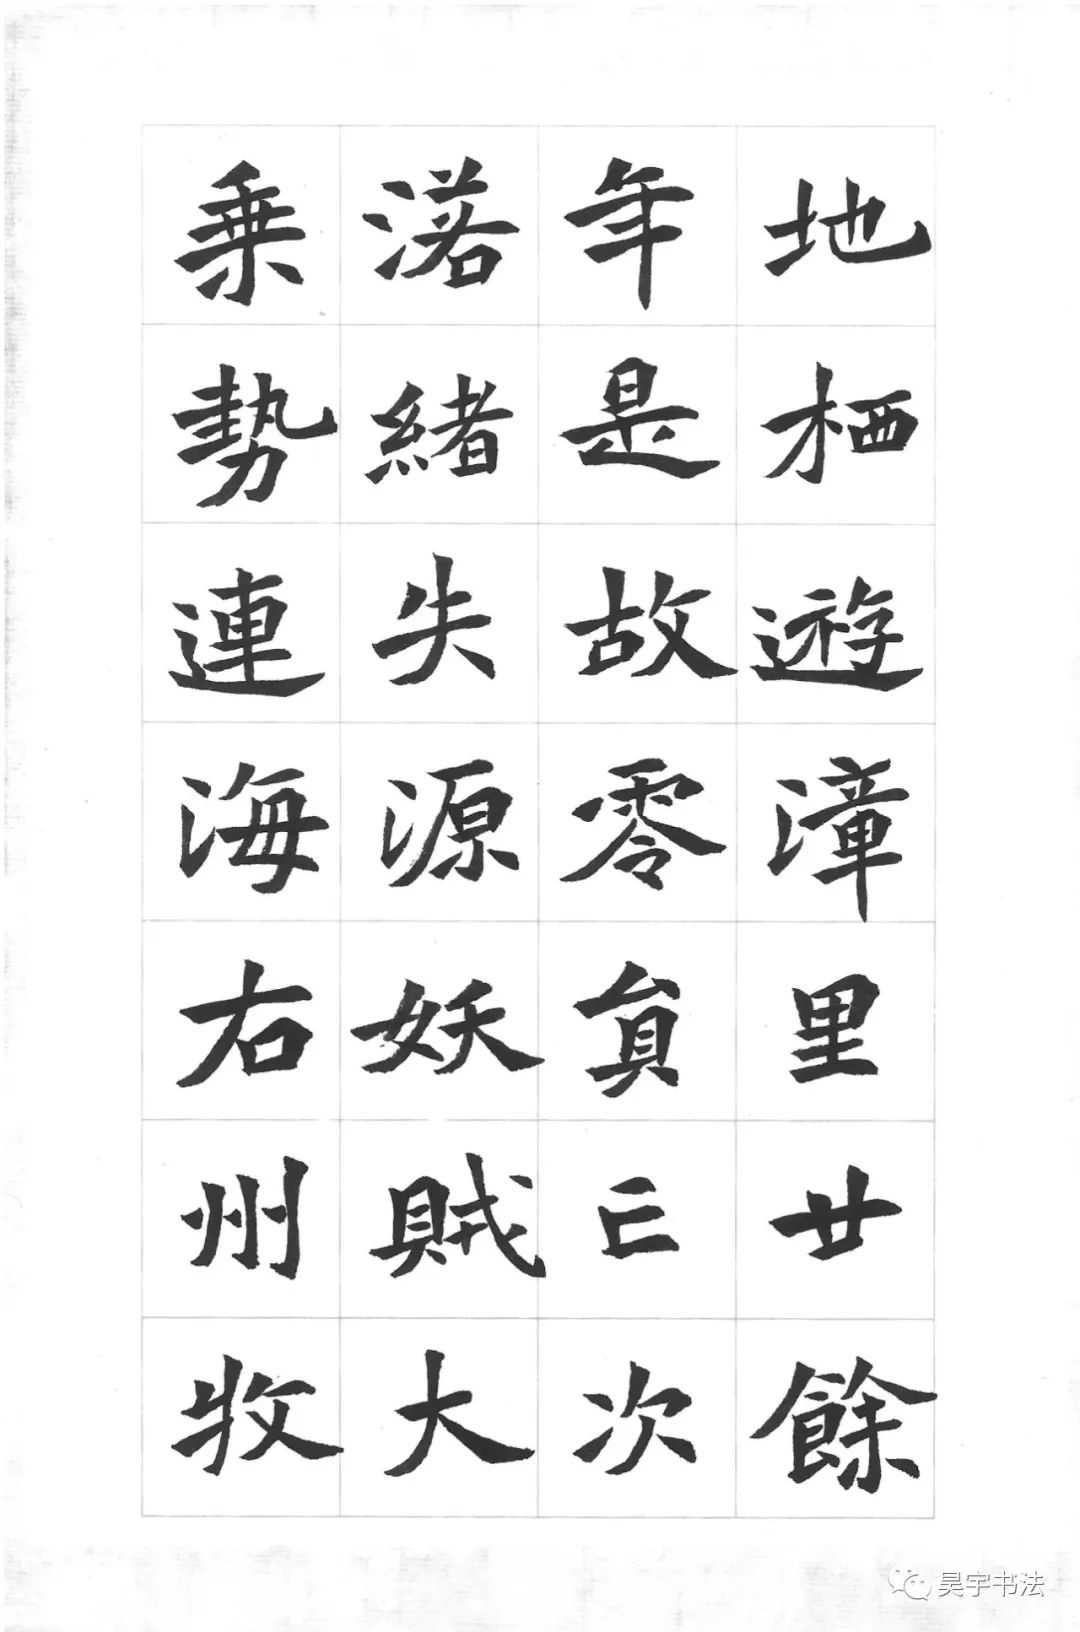 地栖遊漳里廿餘
年是故零真亡次
落緒失源妖賊大
乗勢連海右州牧
昊宇书法